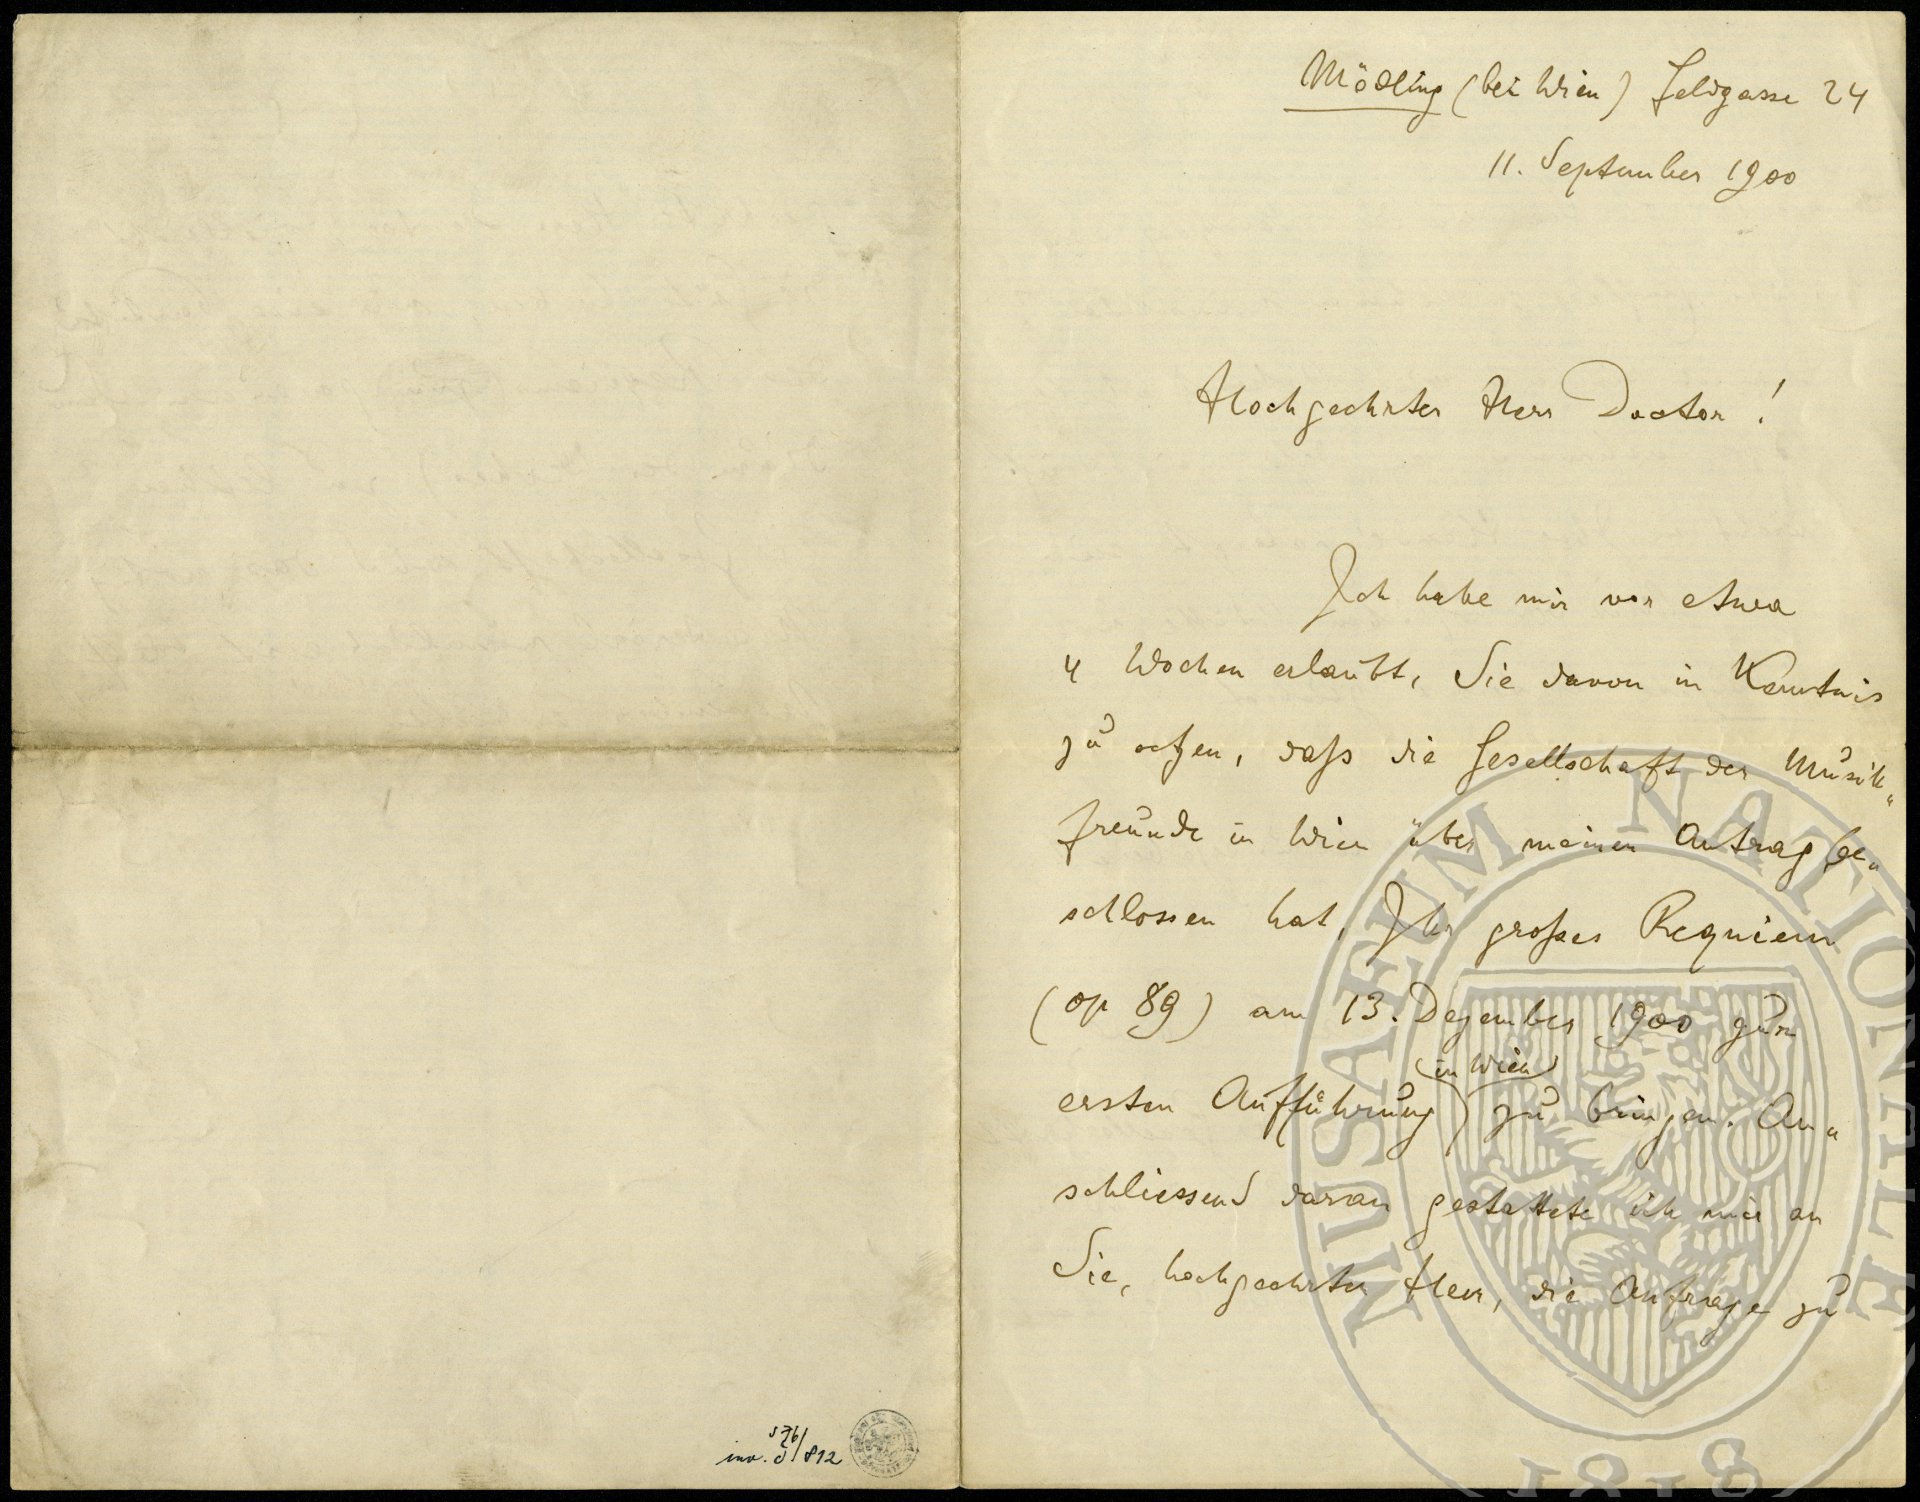 Mödling (bei Wien) Feldgasse 24
11. September 1900
Hochgeehrter Herr Doctor!
Ich habe mir vor etwa
4 Wochen erlaubt, Sie davon in Kenntnis
zu setzen, dass die Gesellschaft der Musik„
freunde in Wien über meinen Antrag be„
schlossen hat, Ihr großes Requiem
(op 89) am 13. Dezember 1900 zur
(in Wien)
ersten Aufführung zu bringen. An„
schliessend daran gestattete ich mir an
Sie, hochgeehrter Herr, die Anfrage zu
inv. S 76/812
MUSAEUM NATIONALE
1818